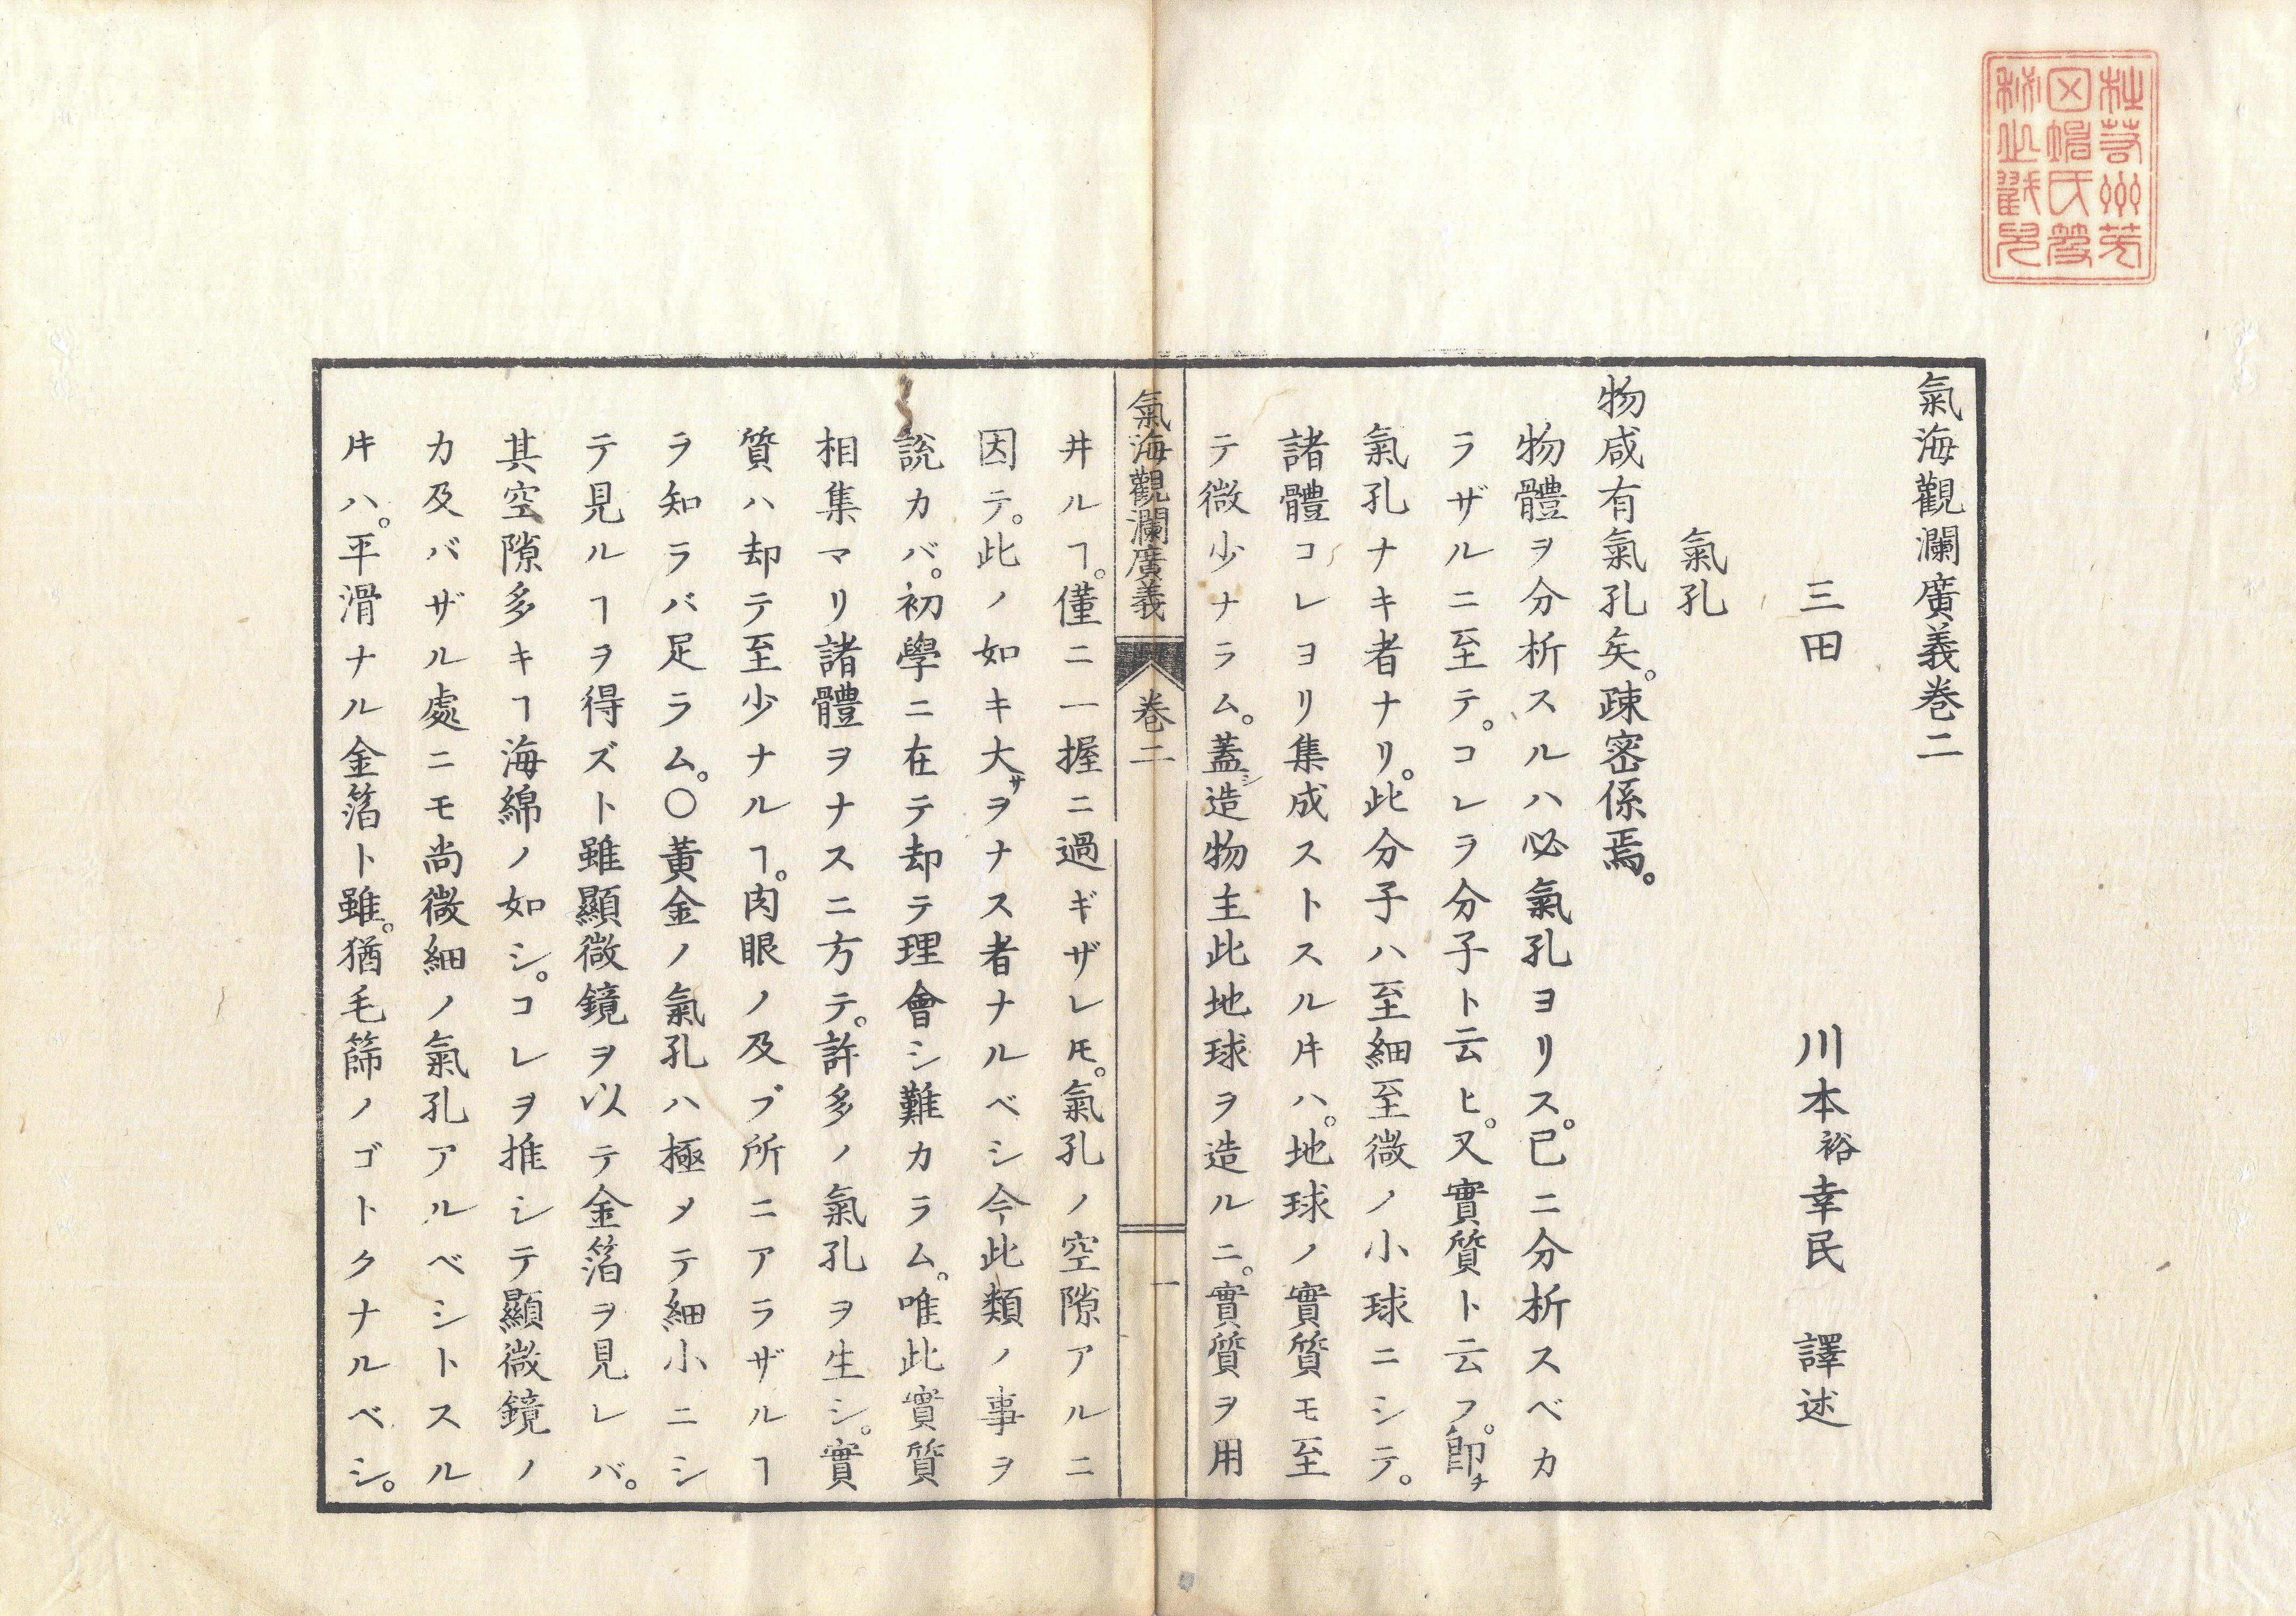 氣海觀瀾廣義卷二
三田 川本裕幸民 譯述
氣孔
物咸有氣孔矣。疎密係焉。
物體ヲ分析スルハ必氣孔ヨリス。已ニ分析スベカ
ラザルニ至テ。コレヲ分子ト云ヒ。又實質ト云フ。卽チ
氣孔ナキ者ナリ。此分子ハ至細至微ノ小球ニシテ。
諸體コレヨリ集成ストスルヰハ。地球ノ實質モ至
テ微少ナラム。蓋シ造物主此地球ヲ造ルニ。實質ヲ用
氣海觀瀾廣義 卷二 一
井ルヿ。僅ニ一握ニ過ギザレ𪜈。氣孔ノ空隙アルニ
因テ。此ノ如キ大サヲナス者ナルベシ今此類ノ事ヲ
說カバ。初學ニ在テ却テ理會シ難カラム。唯此實質
相集マリ諸體ヲナスニ方テ。許多ノ氣孔ヲ生シ。實
質ハ却テ至少ナルヿ。肉眼ノ及ブ所ニアラザルヿ
ヲ知ラバ足ラム。〇黃金ノ氣孔ハ極メテ細小ニシ
テ見ルヿヲ得ズト雖顯微鏡ヲ以テ金箔ヲ見レバ。
其空隙多キヿ海綿ノ如シ。コレヲ推シテ顯微鏡ノ
力及バザル處ニモ尚微細ノ氣孔アルベシトスル
ヰハ。平滑ナル金箔ト雖。猶毛篩ノゴトクナルベシ。